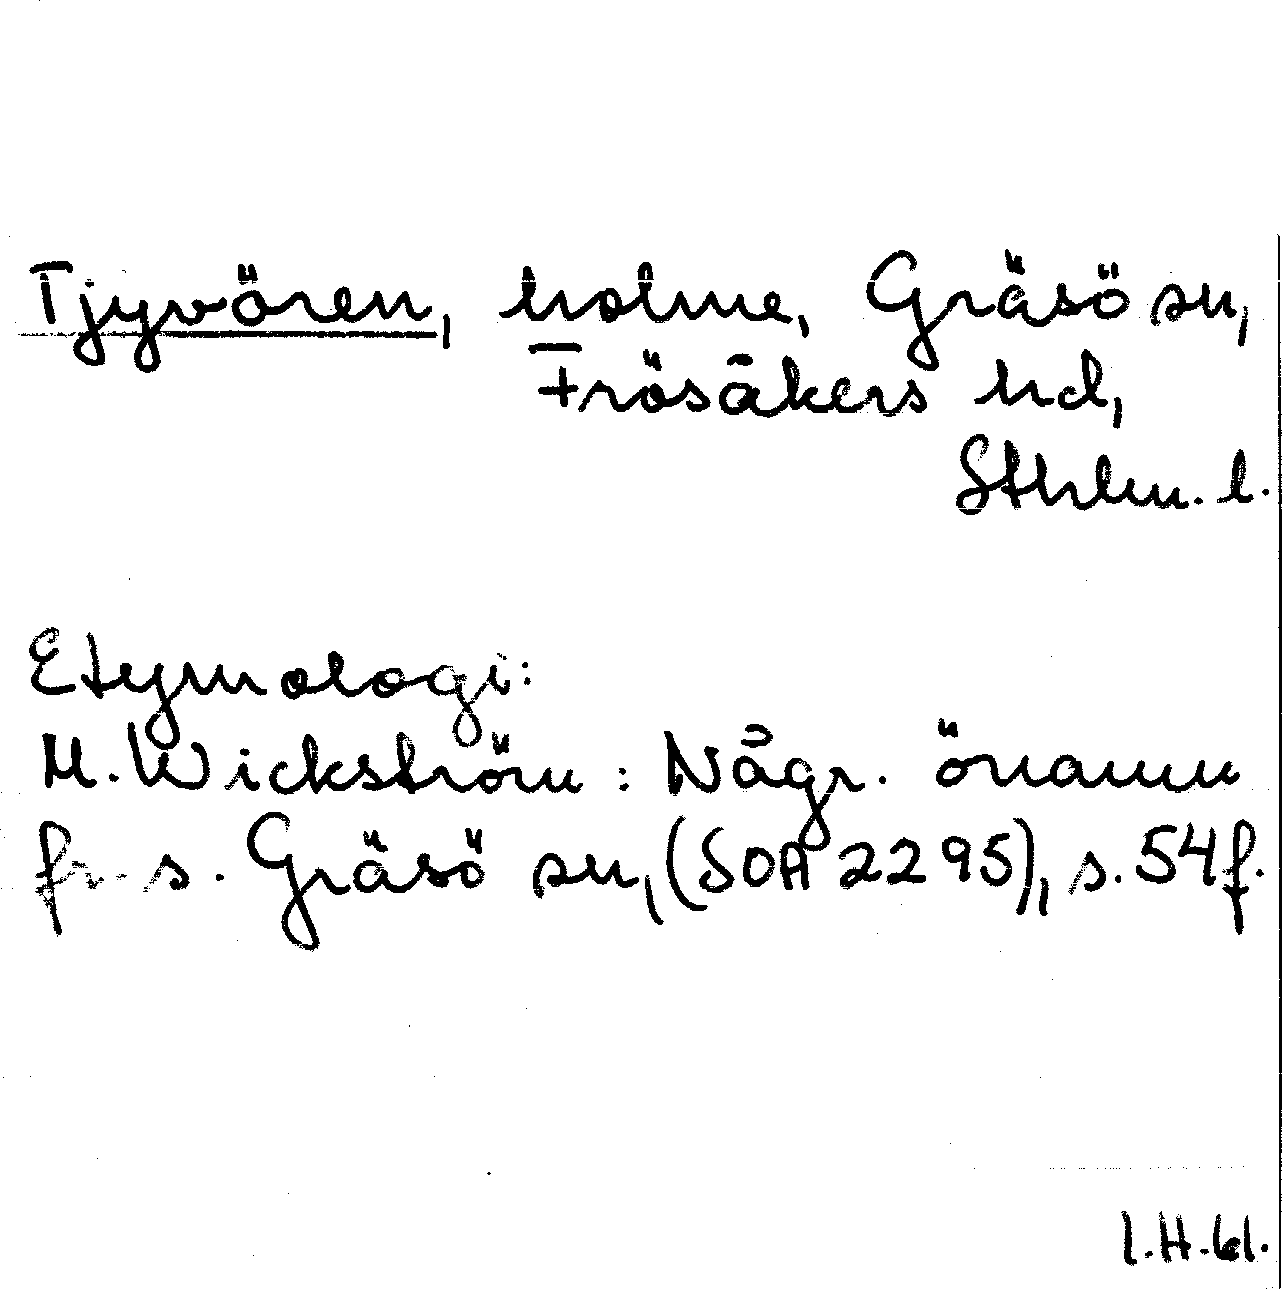 Tjyvören, holme, Gräsö sn,
Frösåkers hd,
Sthlm. l.
Etymologi:
M. Wickström: Någr. önamn
fr. s. Gräsö sn, (SOA 2295), s. 54f.
I.H.61.